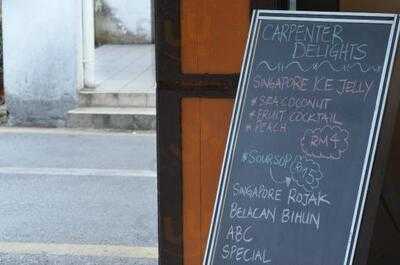 CARPENTER
DELIGHTS
SINGAPORE ICE JELLY
*SEA COCONUT
*FRUIT COCKTAIL
*PEACH
RM4
*SOURSOP RM5
SINGAPORE ROJAK
BELACAN BIHUN
ABC
SPECIAL